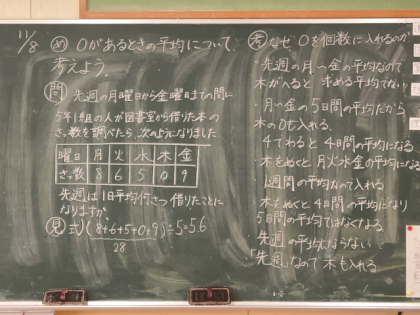 11/8
め 0があるときの平均について
考えよう。
問 先週の月曜日から金曜日までの間に
5年1組の人が図書室から借りた本の
さっ数を調べたら、次のようになりました
曜日 月 火 水 木 金
さっ数 8 6 5 0 9
先週は1日平均何さっ借りたことに
なりますか。
見 式 (8+6+5+0+9)÷5=5.6
28
考 なぜ0を個数に入れるのか
・先週の月～金の平均なので
木が入ると求める平均でない
・月～金の5日間の平均だから
木の0も入れる。
・4でわると4日間の平均になる
・木をぬくと月火水金の平均になる
・1週間の平均なので入れる
・木をぬくと4日間の平均になり
5日間の平均ではなくなる
・先週の平均にならない
・先週なので木も入れる